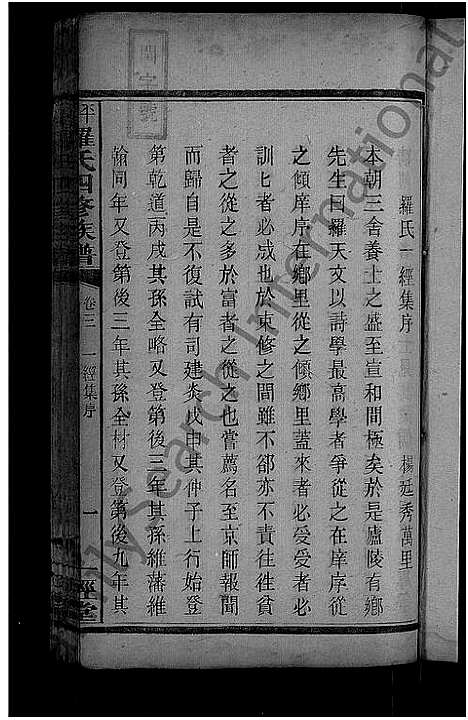 羅氏一經集序
楊廷秀萬里
本朝三舍養士之盛至宣和間極矣於是廬陵有鄉
先生曰羅天文以詩學最高學者爭從之在庠序從
之傾庠序在鄉里從之傾鄉里蓋來者必受受者必
訓匕者必成也於束修之間雖不卻亦不責往往貧
者之從之多於富者之從之也嘗薦名至京師報聞
而歸自是不復試有司建炎戊申其仲子上行始登
第乾道丙戌其孫全略又登第後三年其孫維藩維
翰同年又登第後三年其孫全材又登第後九年其
羅氏四修族譜
卷三
一經集序
一
一經堂
My Family Search International